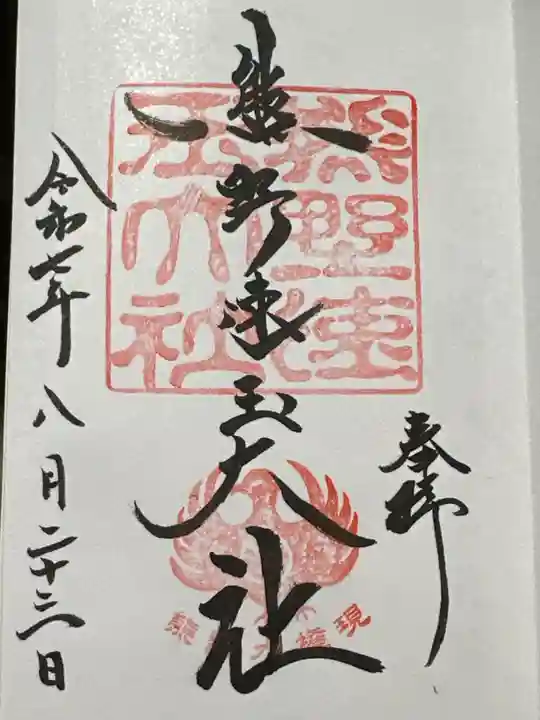 奉拝
熊野速玉大社
熊野速玉大社
令和七年八月二十三日